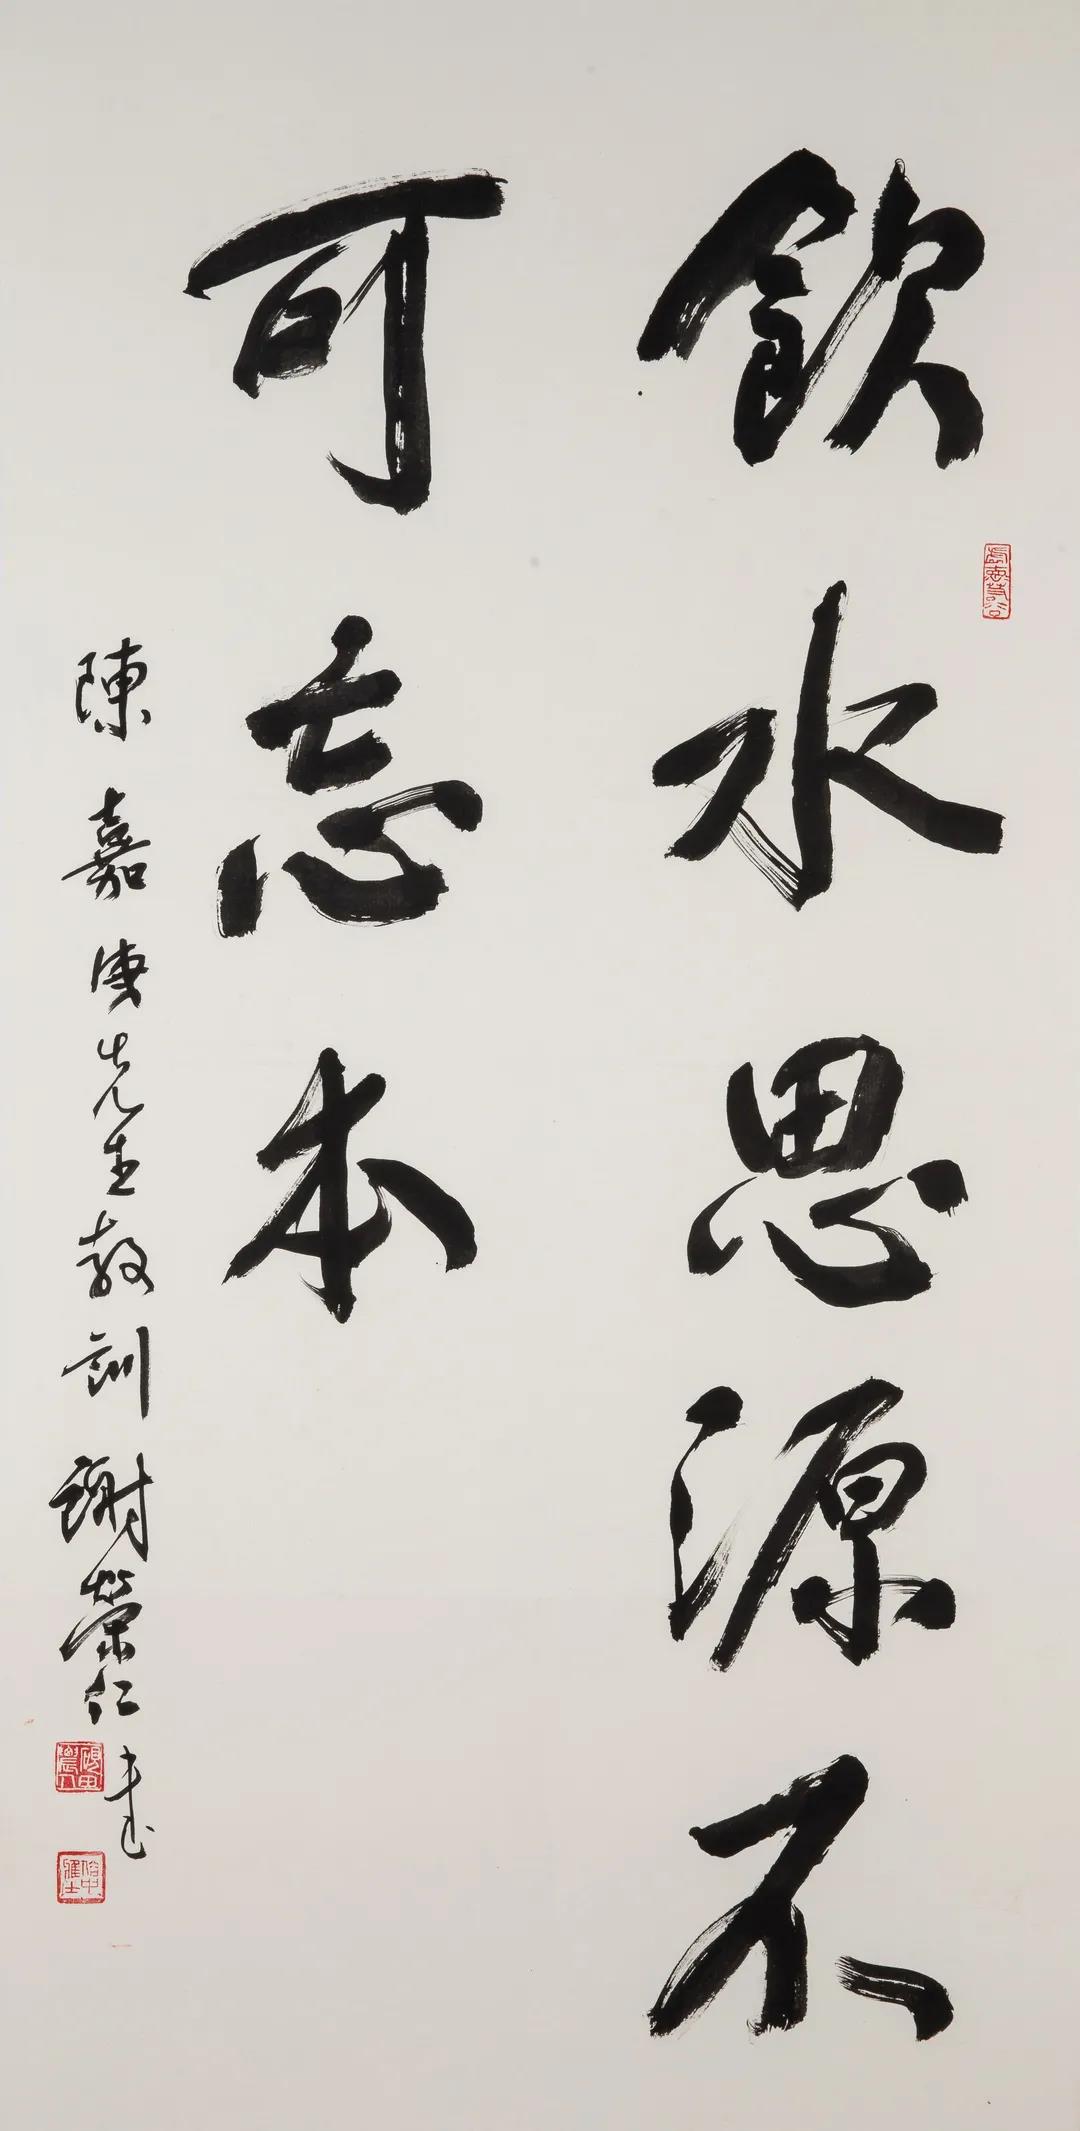 飲水思源不
可忘本
陳嘉庚先生教訓 謝榮仁書